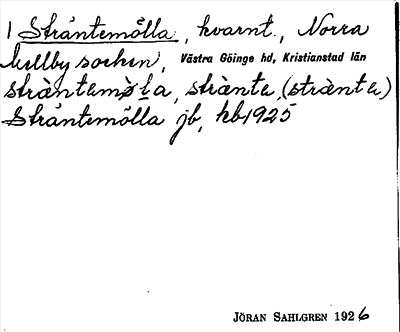 1 Sträntemölla, kvarnt., Norra
Mellby socken, Västra Göinge hd, Kristianstad län
strä̀ntamø̀la, strànta, (strànta)
Sträntemölla jb, hb1925
JÖRAN SAHLGREN 1926